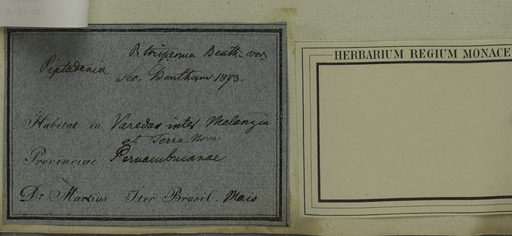 P. trisperma Benth. var
Piptadenia
sec. Bentham 1873.
Habitat in Varedas inter Melangia
et Terra Nova
Provinciae Pernambucanae
Dr. Martius Iter Brasil. Maio
HERBARIUM REGIUM MONACE